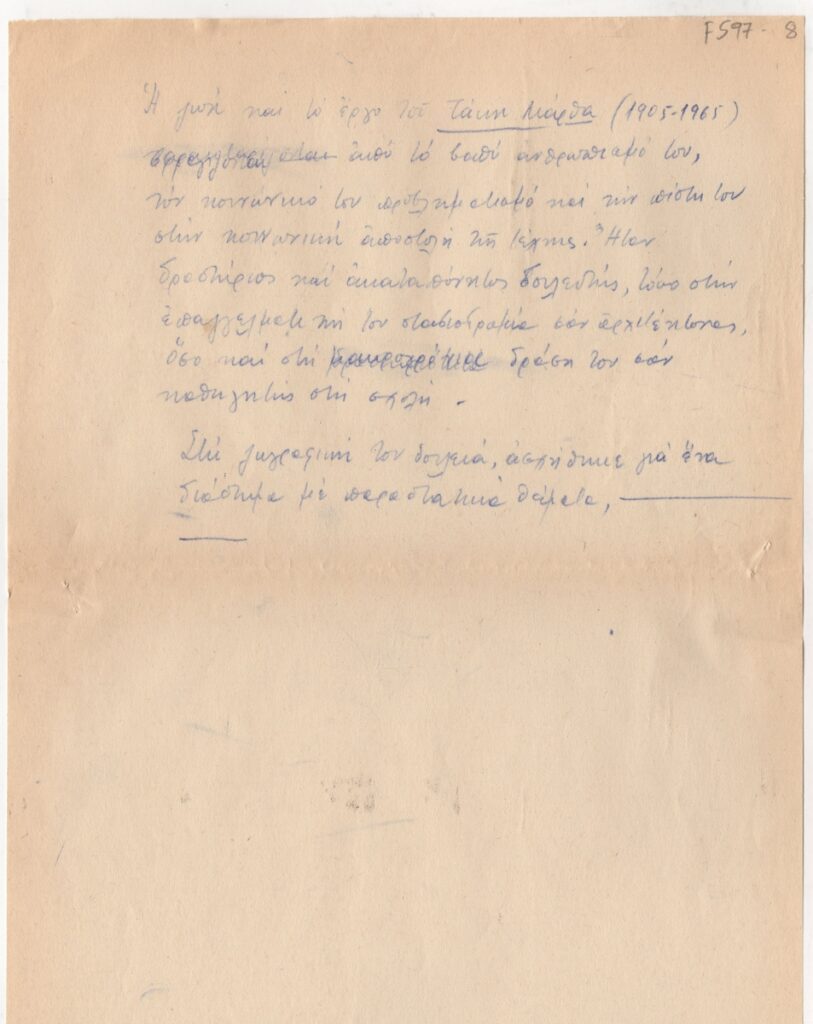 F597 - 8
Ἡ ζωή καί τό ἔργο τοῦ Τάκη Μάρθα (1905-1965)
σφραγίζεται ἀπό τό βαθύ ἀνθρωπισμό του,
τόν κοινωνικό του προβληματισμό καί τήν πίστη του
στήν κοινωνική ἀποστολή τῆς τέχνης. Ἦταν
δραστήριος καί ἀκαταπόνητος δουλευτής, τόσο στήν
ἐπαγγελματική του σταδιοδρομία σάν ἀρχιτέκτονας,
ὅσο καί στή δράση του σάν
καθηγητής στή σχολή.
Στή ζωγραφική του δουλειά, ἀσχήθηκε γιά ἕνα
διάστημα μέ παραστατικά θέματα,